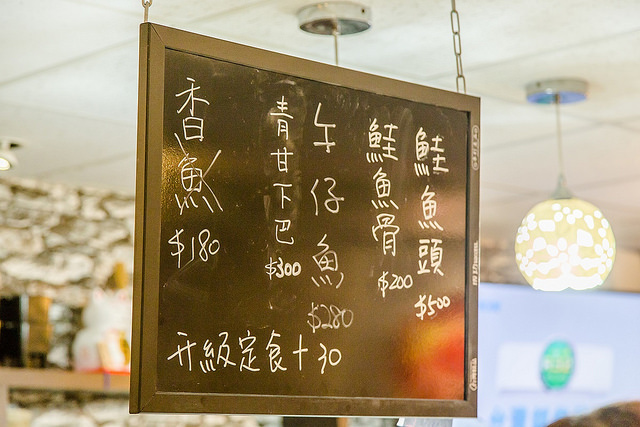 鮭魚頭 $500
鮭魚骨 $200
午仔魚 $280
青甘下巴 $300
香魚 $180
升級定食+30